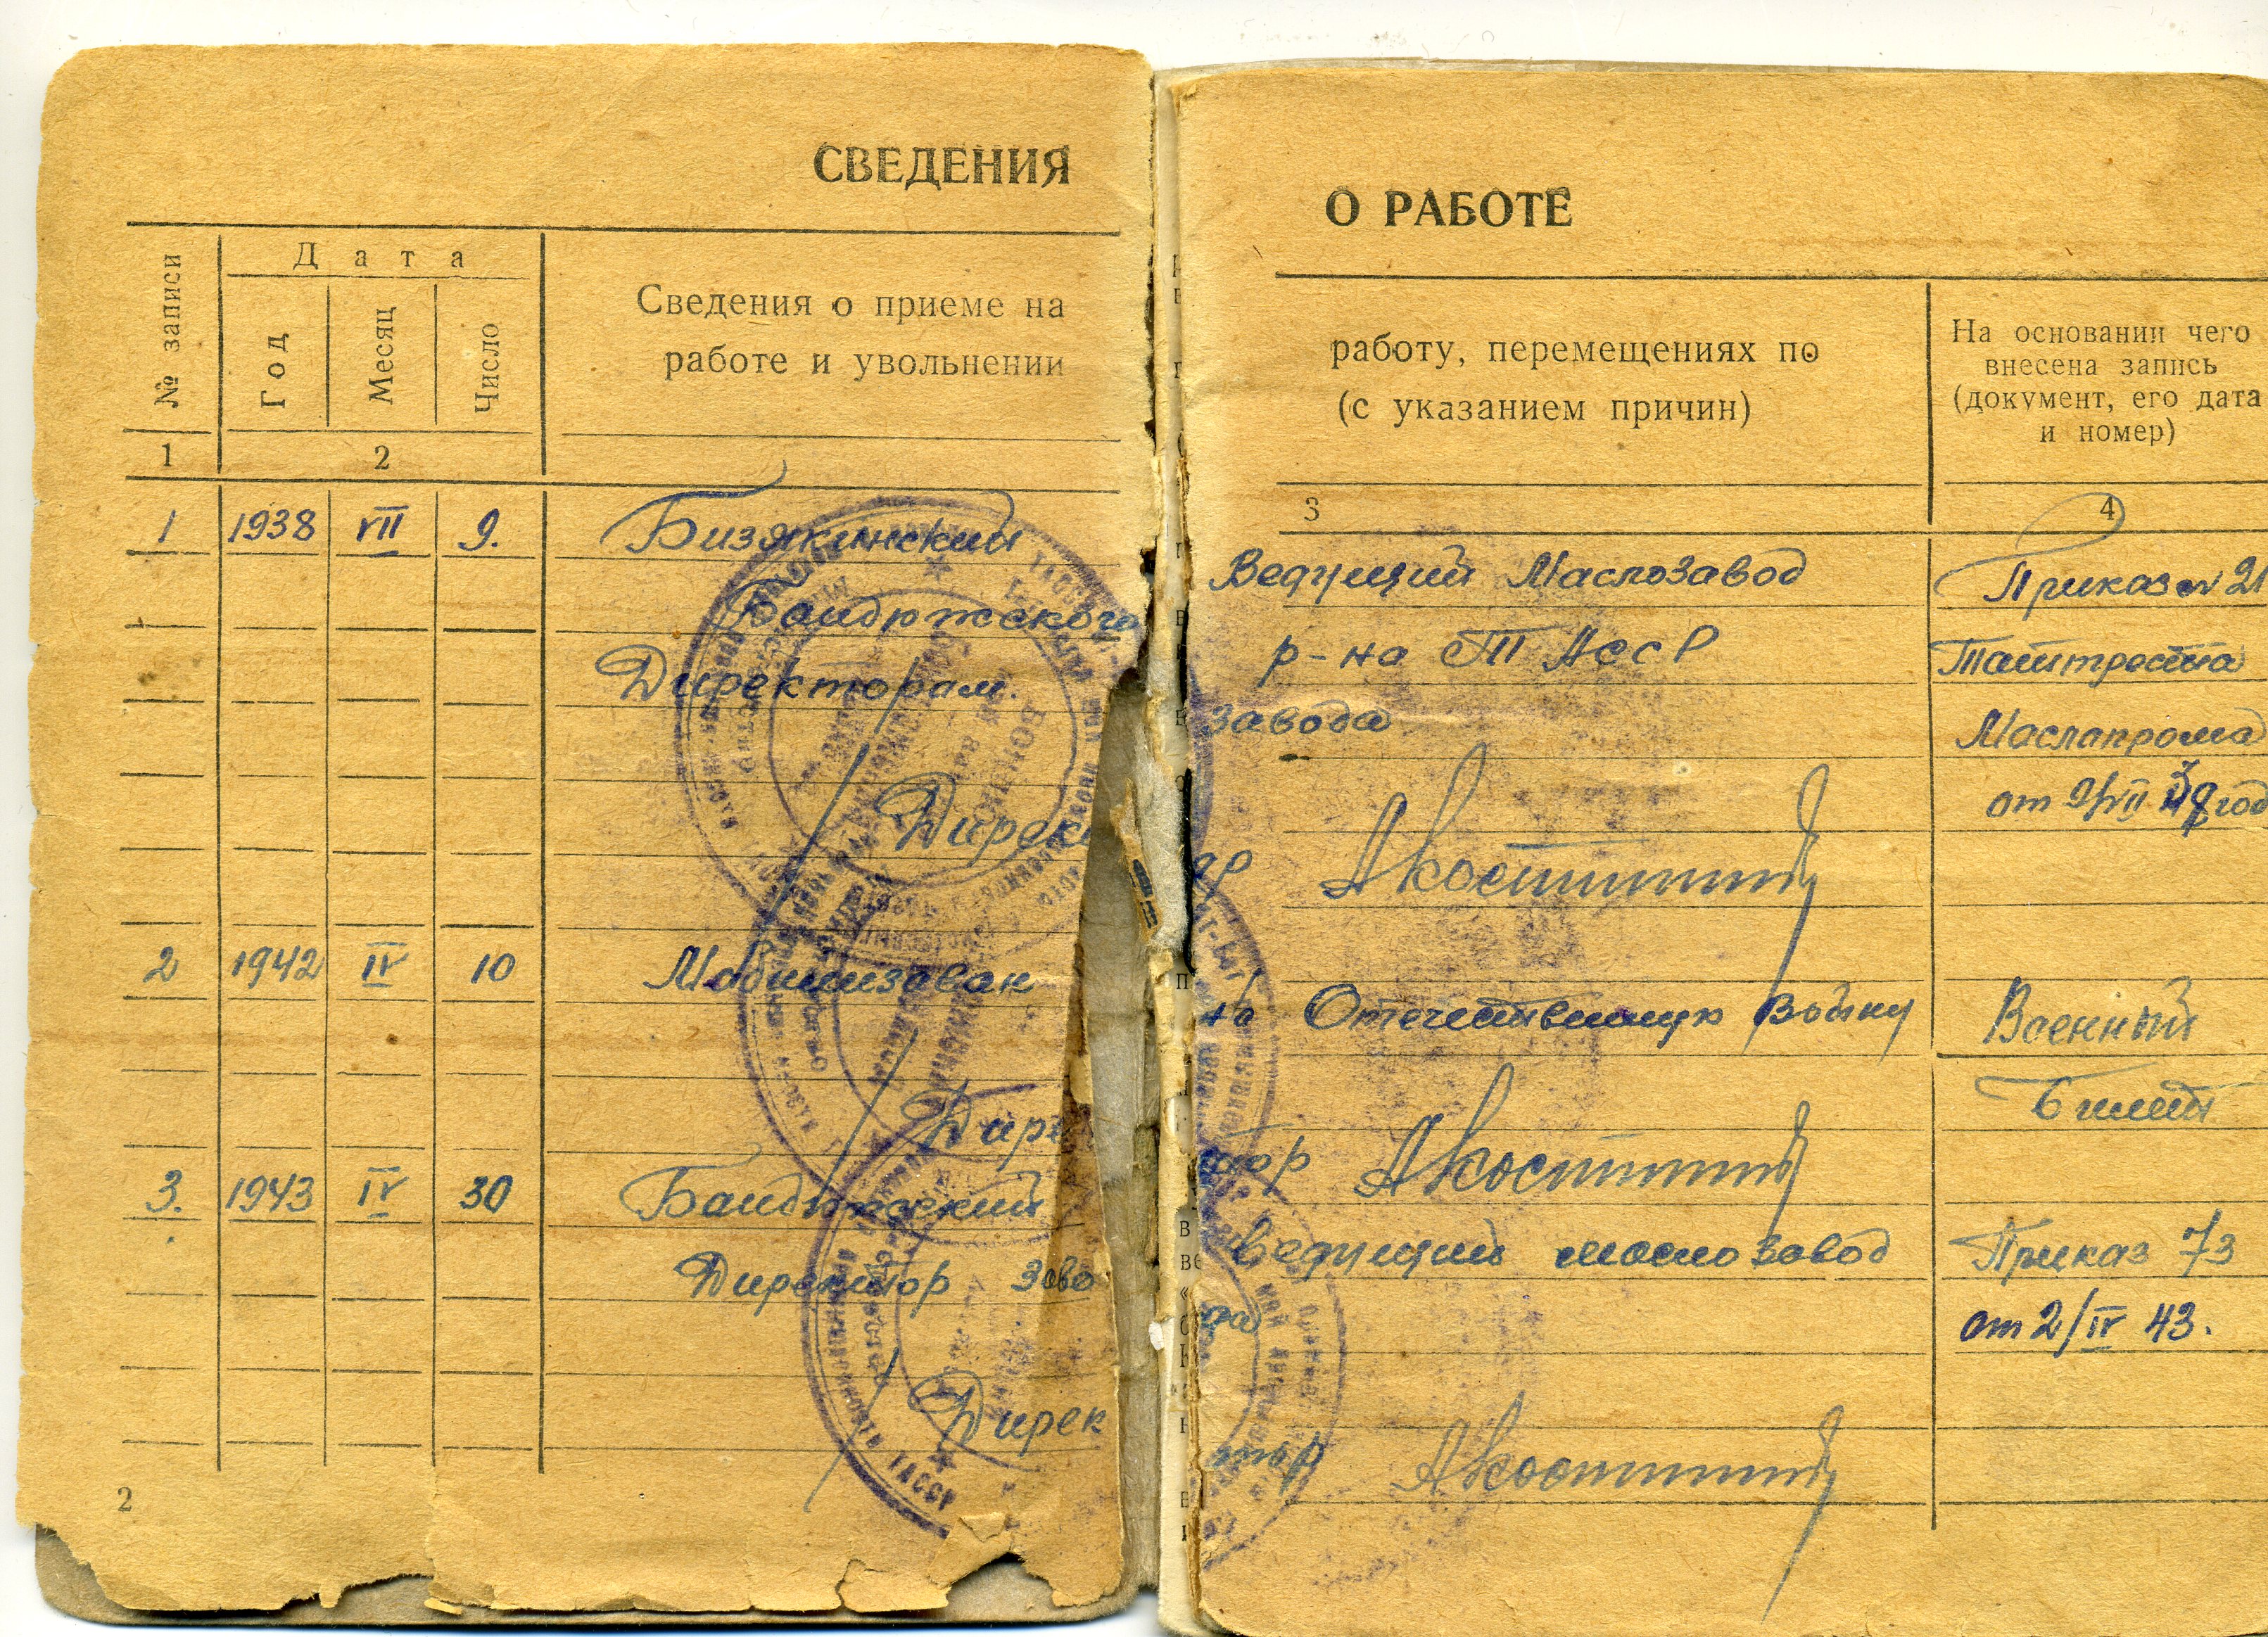 СВЕДЕНИЯ О РАБОТЕ
№ записи
Дата
Год
Месяц
Число
Сведения о приеме на работу, перемещениях по
работе и увольнении (с указанием причин)
На основании чего
внесена запись
(документ, его дата
и номер)
1 2 3 4
1 1938 VII 9. Бизякинский Ведущий Маслозавод Приказ № 21
Бондюжского р-на ТАССР Таттреста
Директорам. завода Маслапрома
от 9/VII 38 год
Директор
2 1942 IV 10 Мобилизован на Отечественную Войну Военный
Билет
Директор
3. 1943 IV 30 Бондюжский Ведущий маслозавод Приказ 73
Директор завода от 2/IV 43.
Директор
2